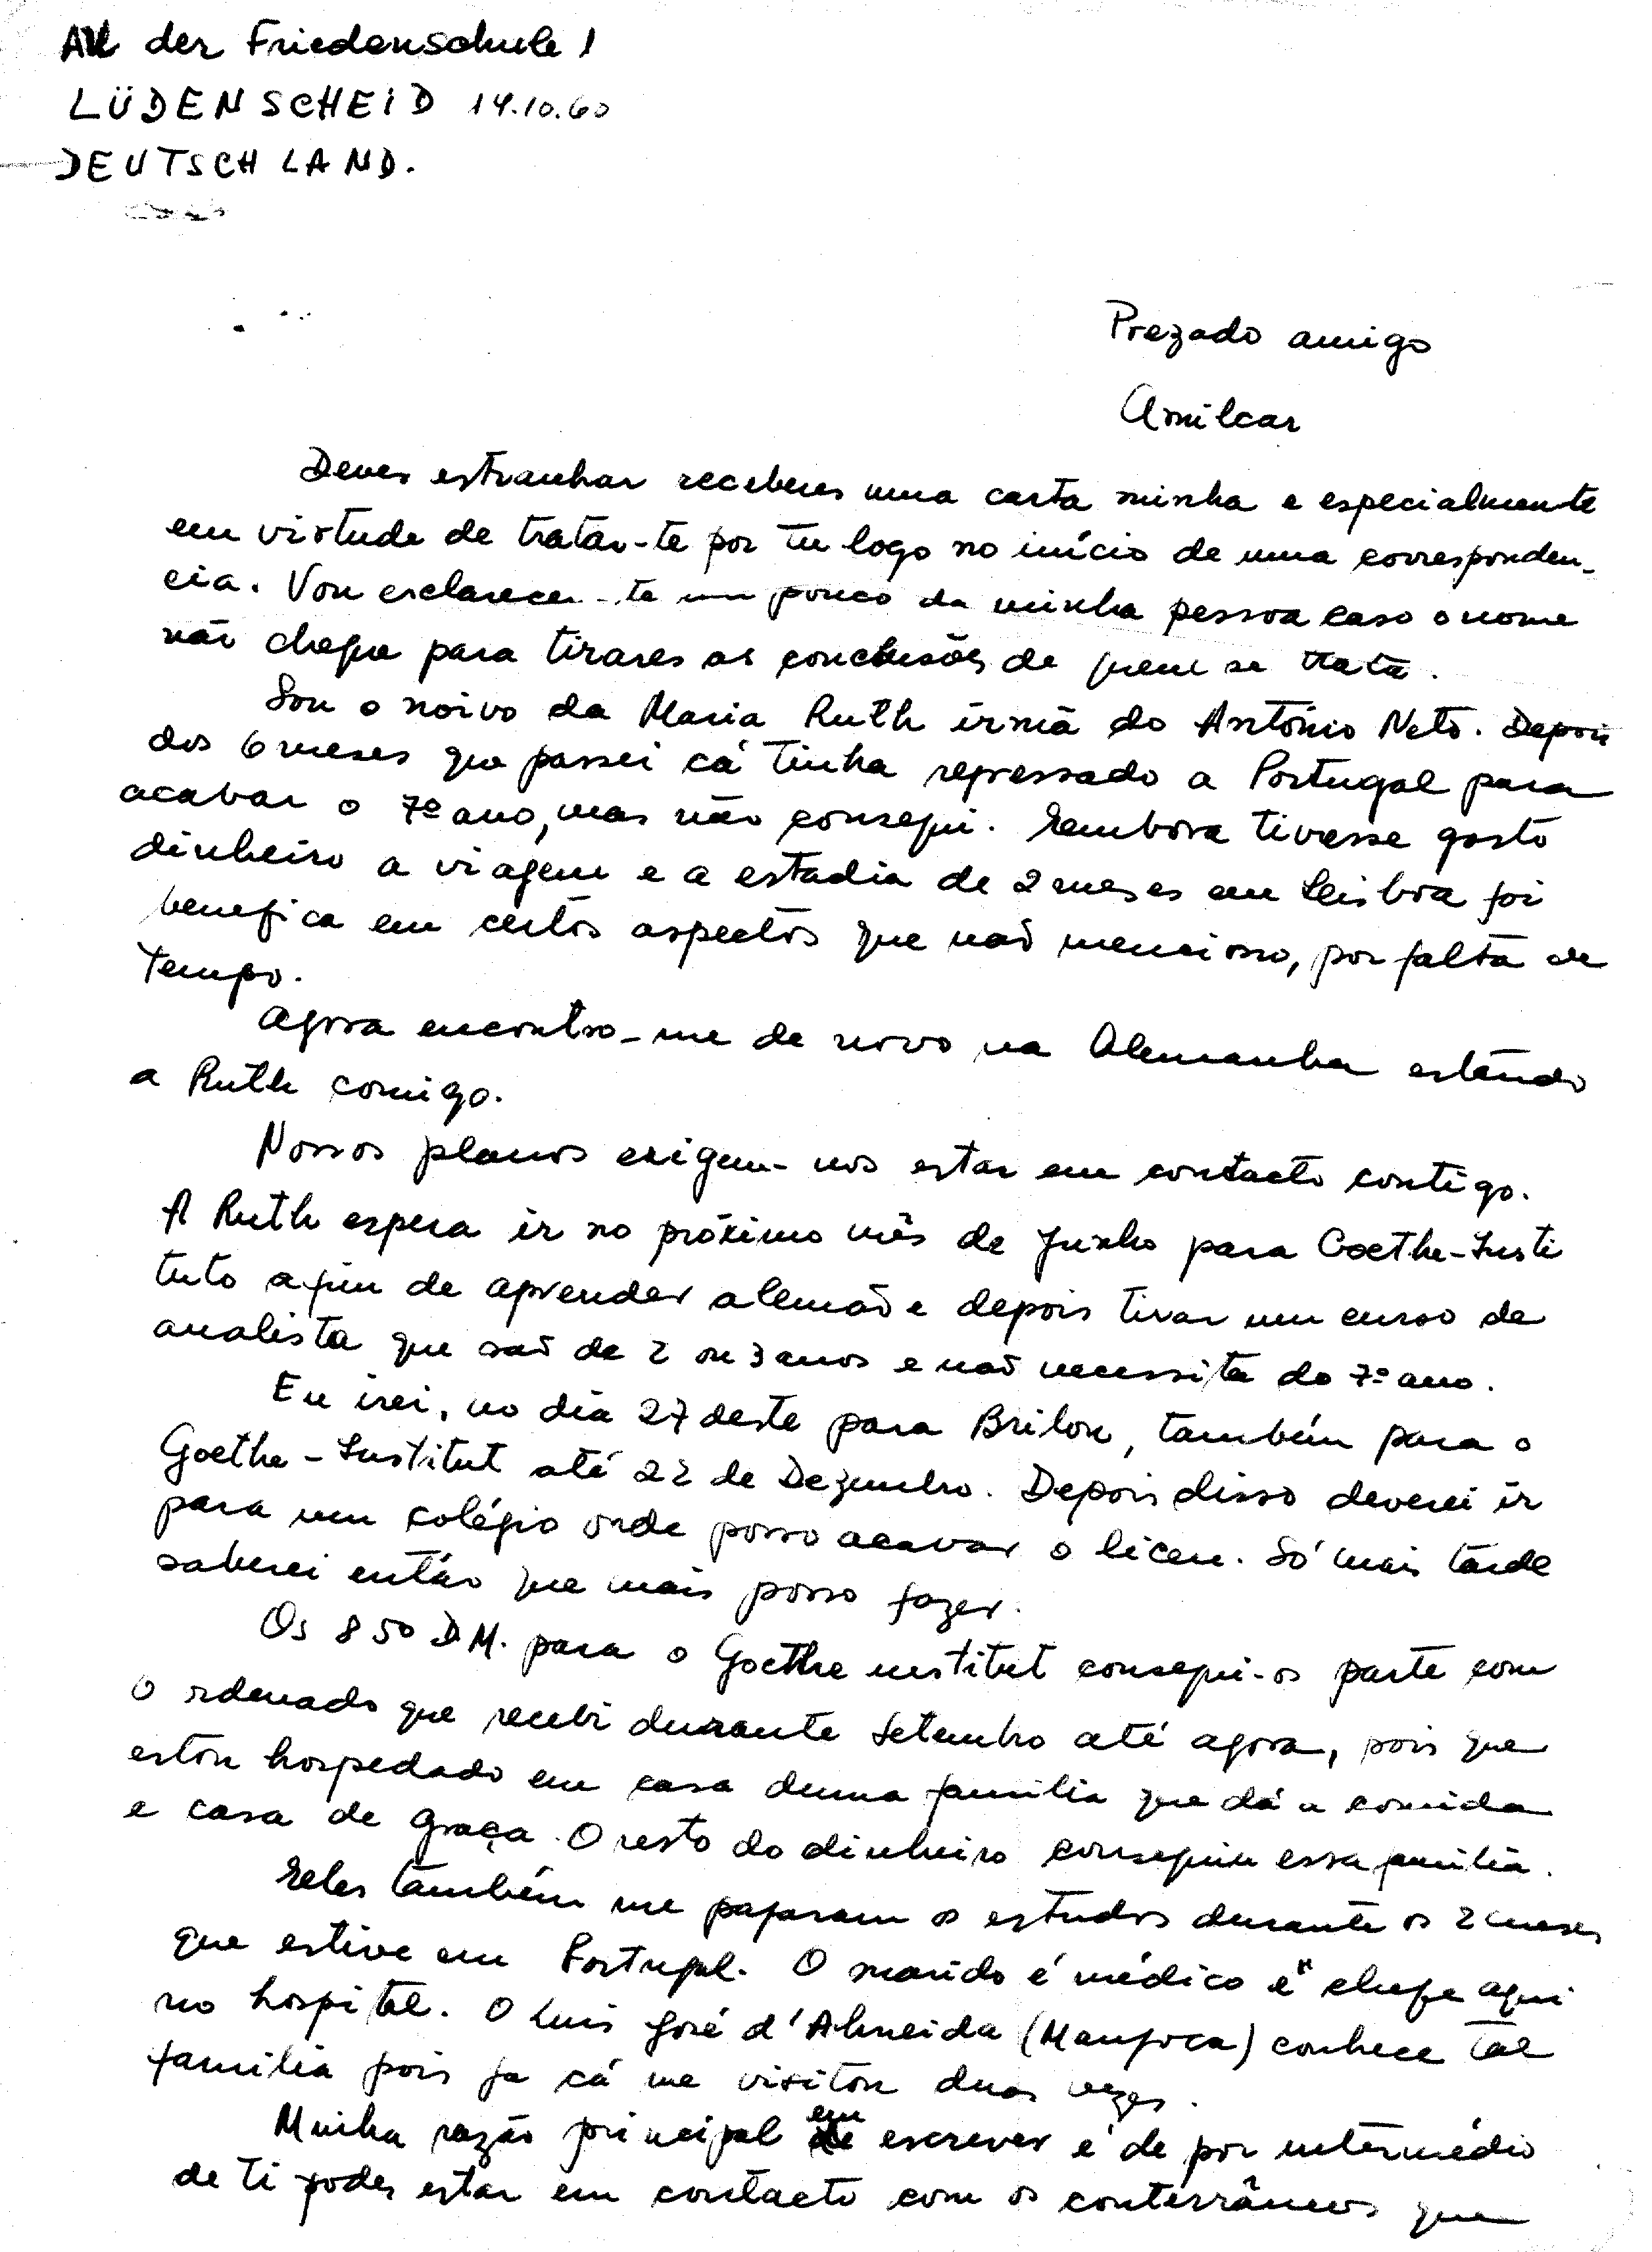 An der Friedenschule 1
LÜDENSCHEID 14.10.60
DEUTSCHLAND.
Prezado amigo
Amilcar
Deves estranhar receberes uma carta minha e especialmente
em virtude de tratar-te por tu logo no início de uma corresponden-
cia. Vou esclarecer-te um pouco da minha pessoa caso o nome
não chegue para tirares as conclusões de quem se trata.
Sou o noivo da Maria Ruth irmã do António Neto. Depois
dos 6 meses que passei cá tinha regressado a Portugal para
acabar o 7º ano, mas não consegui. Embora tivesse gasto
dinheiro a viagem e a estadia de 2 meses em Lisboa foi
benefica em certos aspectos que não menciono, por falta de
tempo.
Agora encontro-me de novo na Alemanha estando
a Ruth comigo.
Nossos planos exigem-nos estar em contacto contigo.
A Ruth espera ir no próximo mês de Junho para Goethe-Insti
tuto afim de aprender alemão e depois tirar um curso de
analista que são de 2 ou 3 anos e não necessita do 7º ano.
Eu irei, no dia 27 deste para Brilon, também para o
Goethe-Institut até 22 de Dezembro. Depois disso deverei ir
para um colégio onde posso acavar o liceu. Só mais tarde
saberei então que mais posso fazer.
Os 850 DM. para o Goethe institut consegui-os parte com
o ordenado que recebi durante Setembro até agora, pois que
estou hospedado em casa duma família que dá a comida
e casa de graça. O resto do dinheiro conseguiu essa família.
Eles também me pagaram os estudos durante os 2 meses
que estive em Portugal. O marido é médico e" chefe aqui
no hospital. O Luis José d'Almeida (Manfoca) conhece tal
família pois ja cá me visitou duas vezes.
Minha razão principal em escrever é de por intermédio
de ti poder estar em contacto com os conterrâneos que